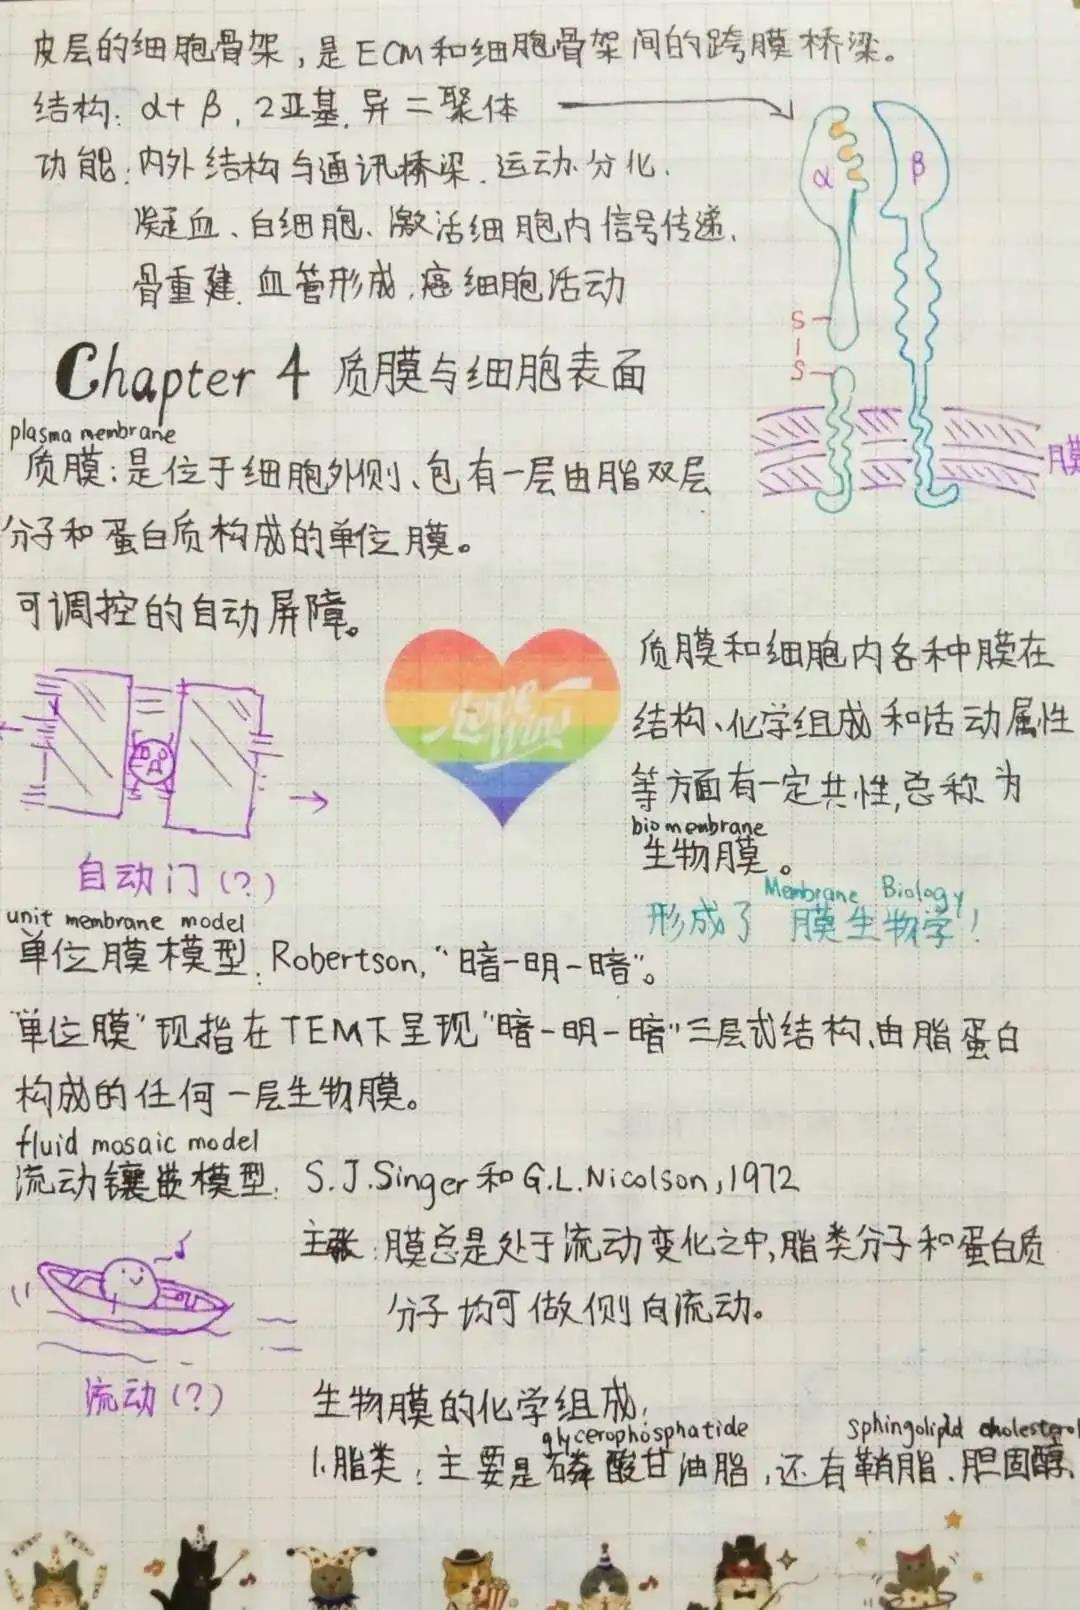 皮层的细胞骨架，是ECM和细胞骨架间的跨膜桥梁。
结构：α+β，2亚基，异二聚体
功能：内外结构与通讯桥梁、运动、分化、
凝血、白细胞、激活细胞内信号传递、
骨重建、血管形成，癌细胞活动
α β
S
S
膜
Chapter 4 质膜与细胞表面
plasma membrane
质膜：是位于细胞外侧、包有一层由脂双层
分子和蛋白质构成的单位膜。
可调控的自动屏障。
自动门(?)
质膜和细胞内各种膜在
结构、化学组成和活动属性
等方面有一定共性，总称为
biomembrane
生物膜。
Membrane Biology
形成了膜生物学！
unit membrane model
单位膜模型：Robertson，“暗-明-暗”。
“单位膜”现指在TEM下呈现“暗-明-暗”三层式结构、由脂蛋白
构成的任何一层生物膜。
fluid mosaic model
流动镶嵌模型：S.J.Singer和G.L.Nicolson，1972
主张：膜总是处于流动变化之中，脂类分子和蛋白质
分子均可做侧向流动。
流动(?)
生物膜的化学组成：
glycerophosphatide sphingolipid cholesterol
1.脂类：主要是磷酸甘油脂，还有鞘脂、胆固醇、